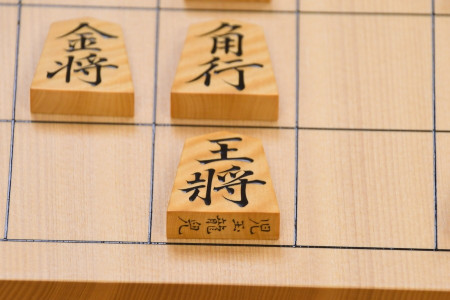 金将
角行
王将
児玉龍兒